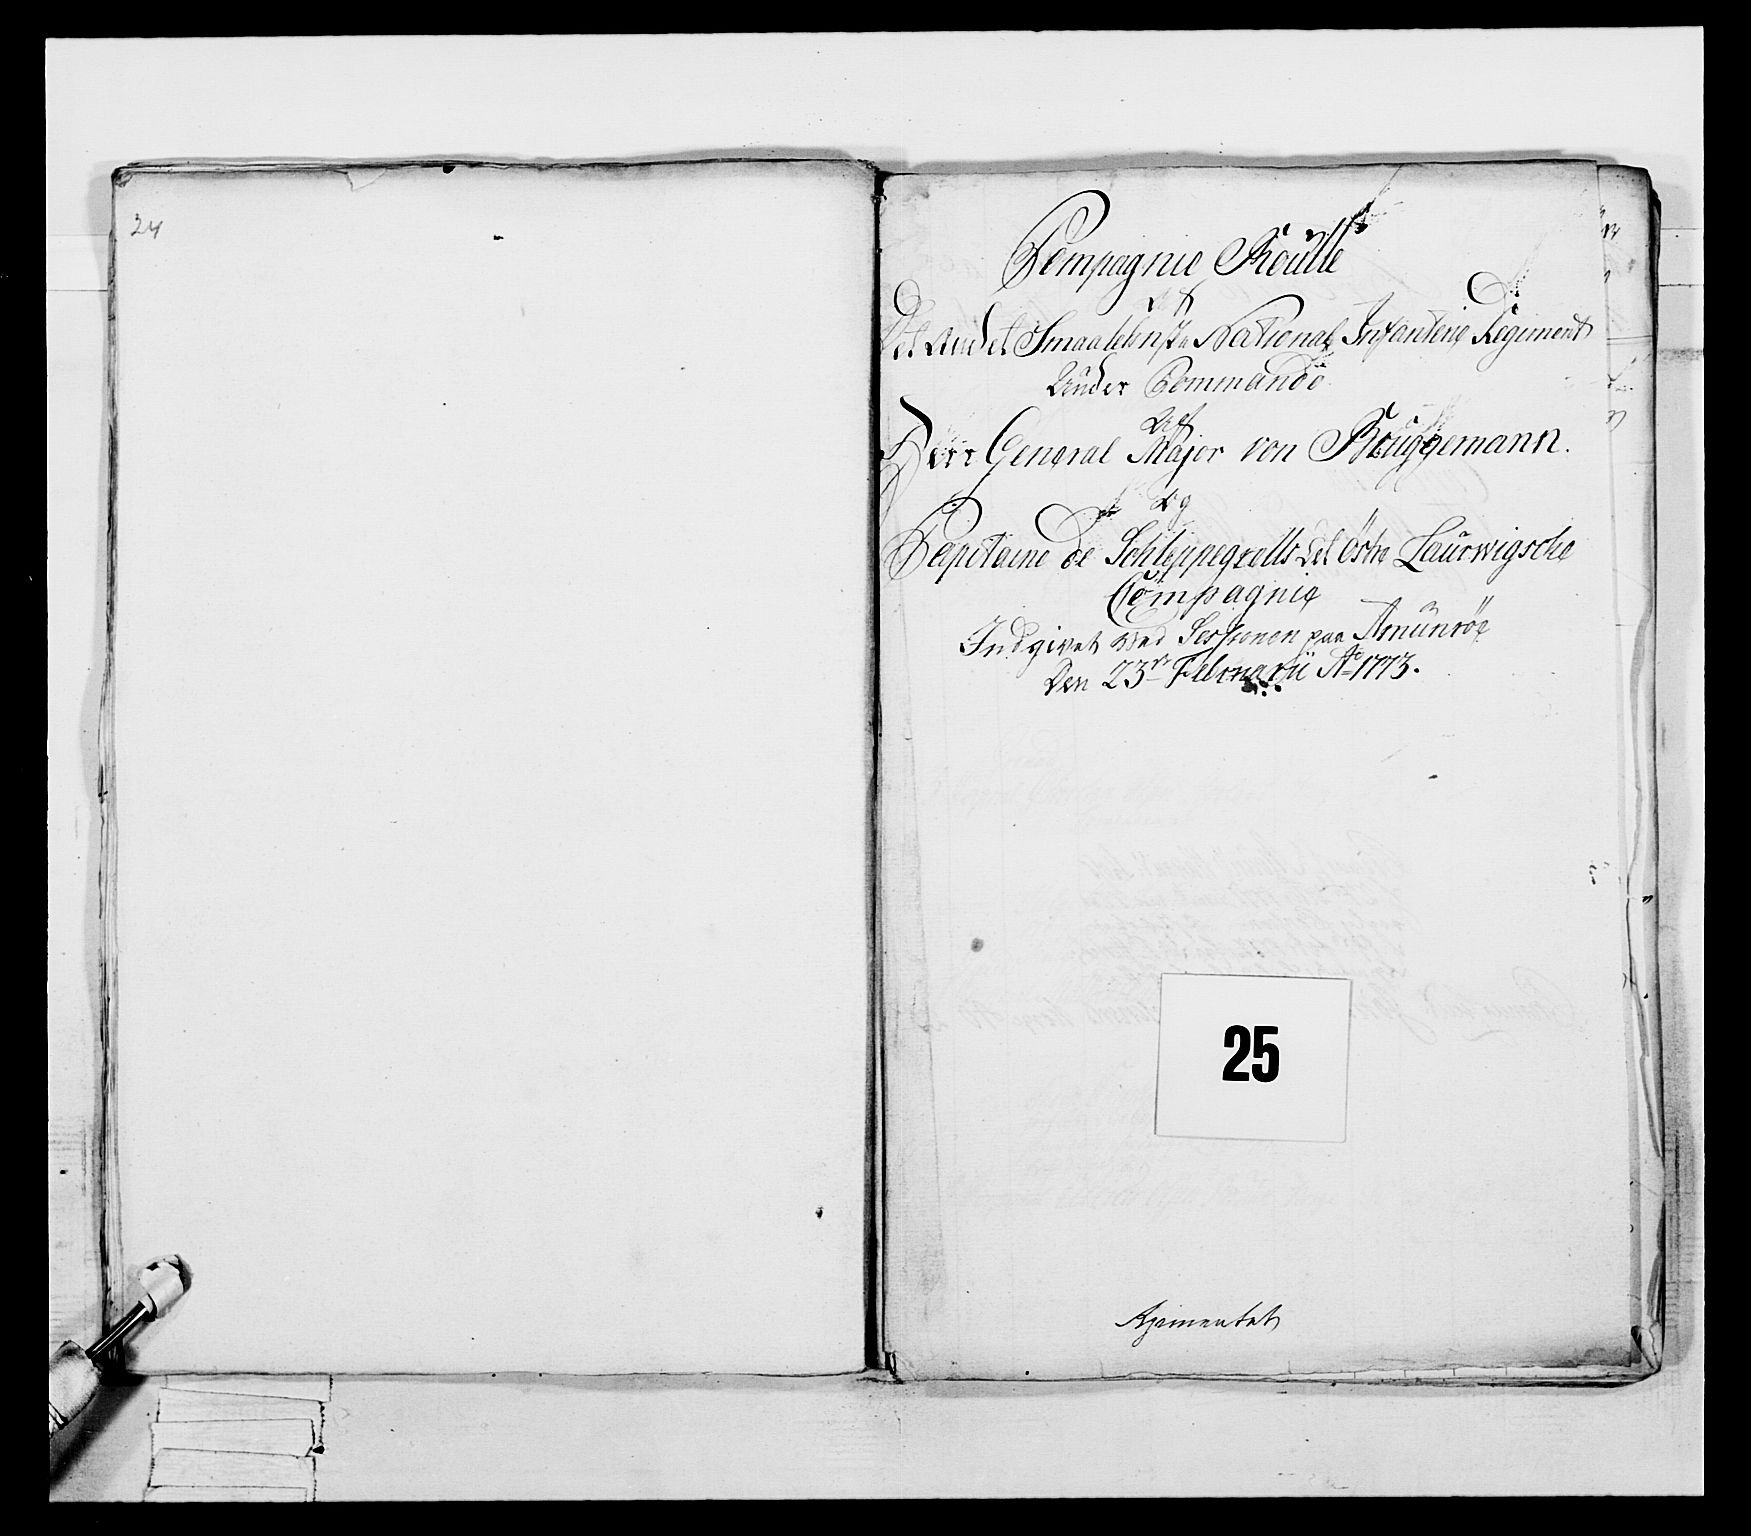 24
Compagnie Roulle
af
Det Andet Smaalehnske National Infanterie Regiment
Under Commando
Af
Herr General Major von Brüggemann.
og
Capitaine de Schleppegrells det östre Laurwigsche
Compagnie
Indgivet ved Sessionen paa Amunröe
Den 23de Februarii Ao 1773.
25